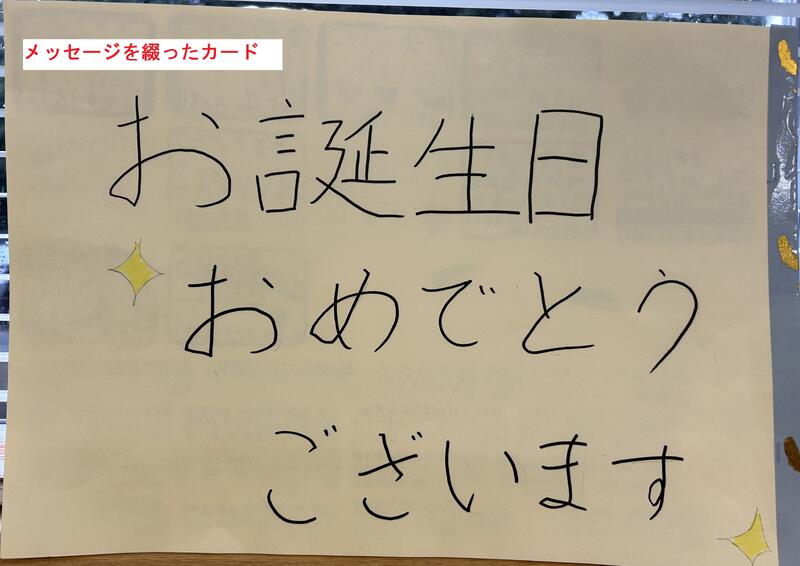 メッセージを綴ったカード
お誕生日
おめでとう
ございます